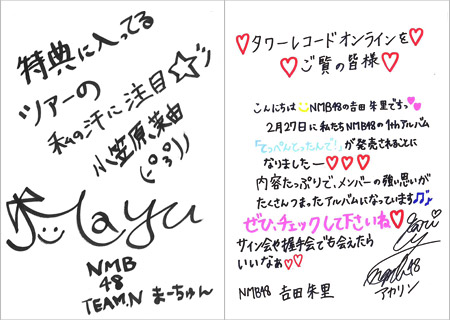 特典に入ってる
ツアーの
私の汗に注目☆
小笠原茉由
Mayu
NMB
48
TEAM.N まーちゅん
♡タワーレコードオンラインを♡
♡ご覧の皆様♡
こんにちは NMB48の吉田朱里ですっ♥♥
2月27日に私たちNMB48の1stアルバム
「てっぺんとったんで!」が発売されることに
なりましたー♡♡♡
内容たっぷりで、メンバーの強い思いが
たくさんつまったアルバムになっています♫♪
ぜひ、チェックして下さいね♡
サイン会や握手会でも会えたら
いいなぁ♡♡
アカリン
NMB48 吉田朱里